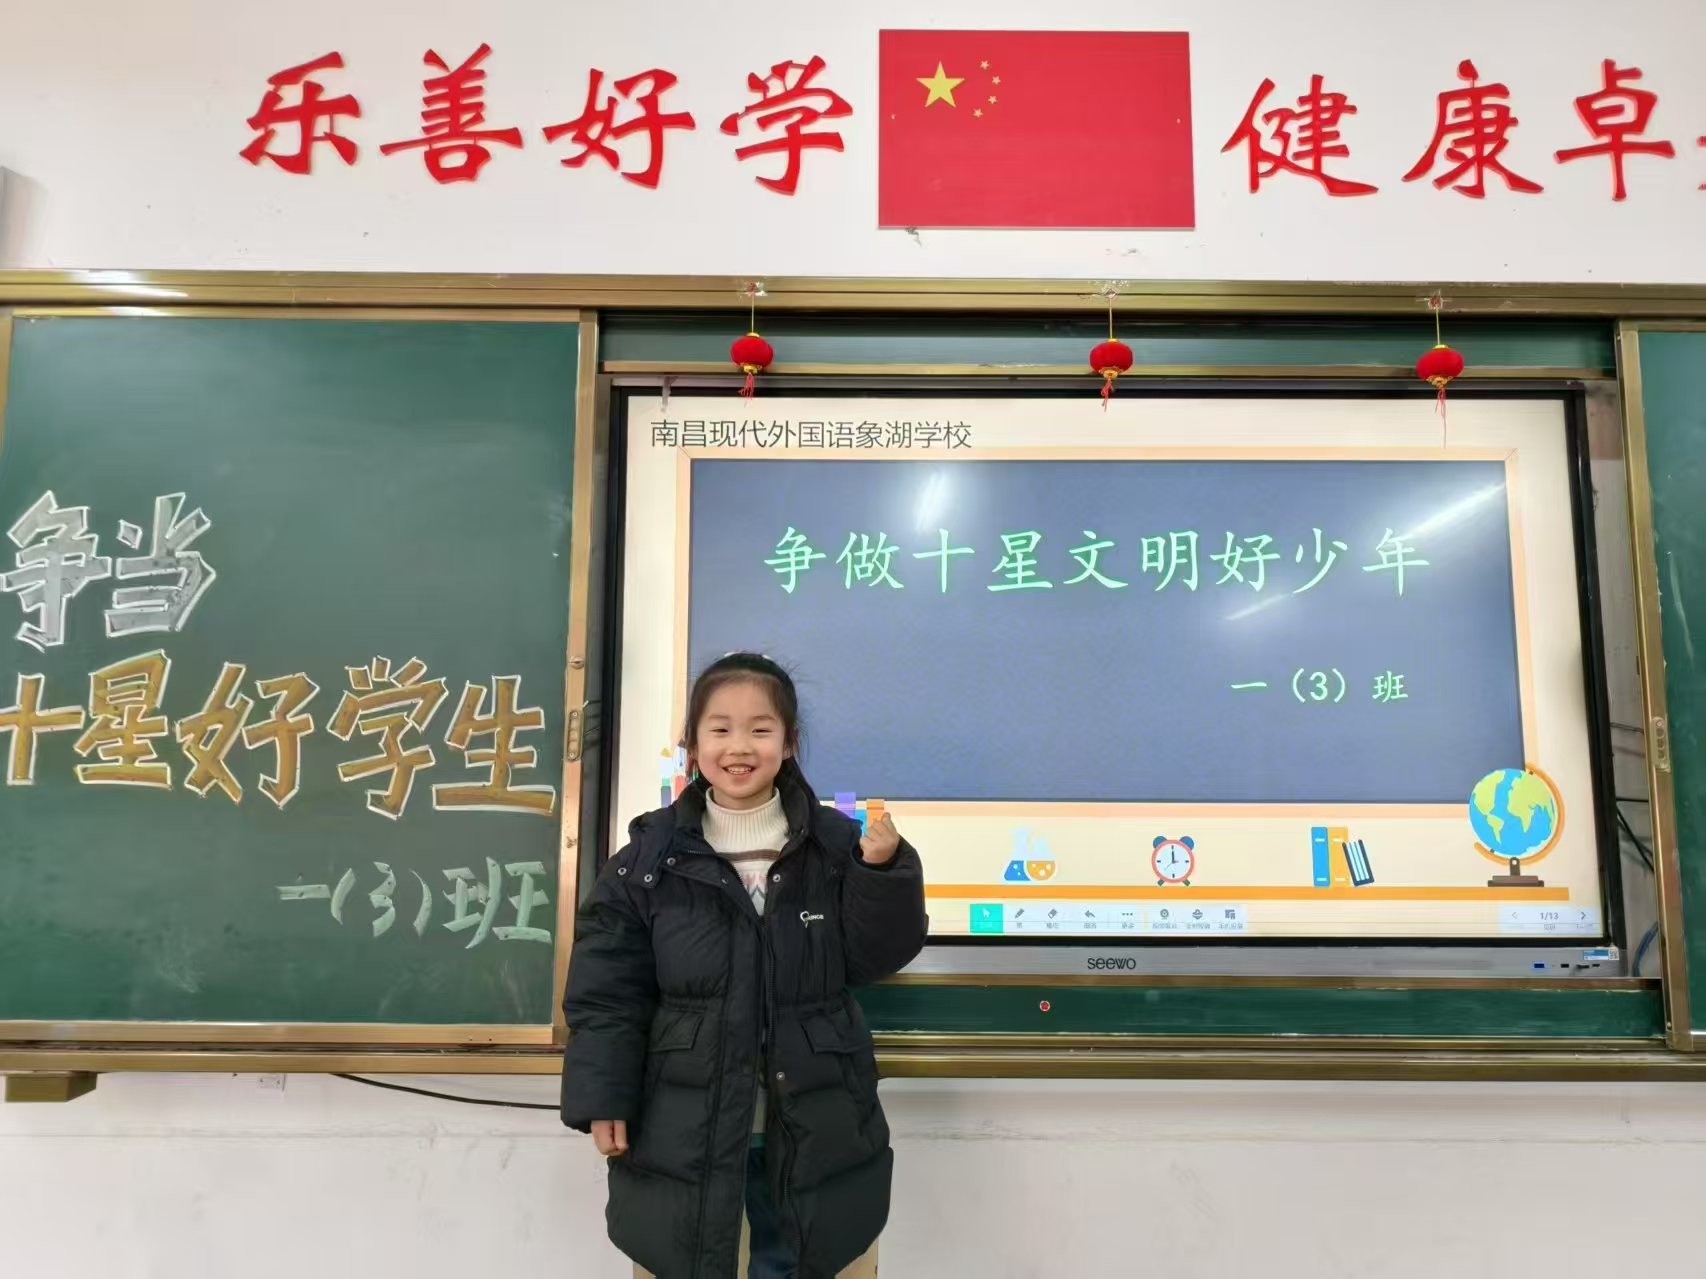 乐善好学 健康卓
南昌现代外国语象湖学校
争做十星文明好少年
一（3）班
争当
十星好学生
一（3）班
1/13
seewo